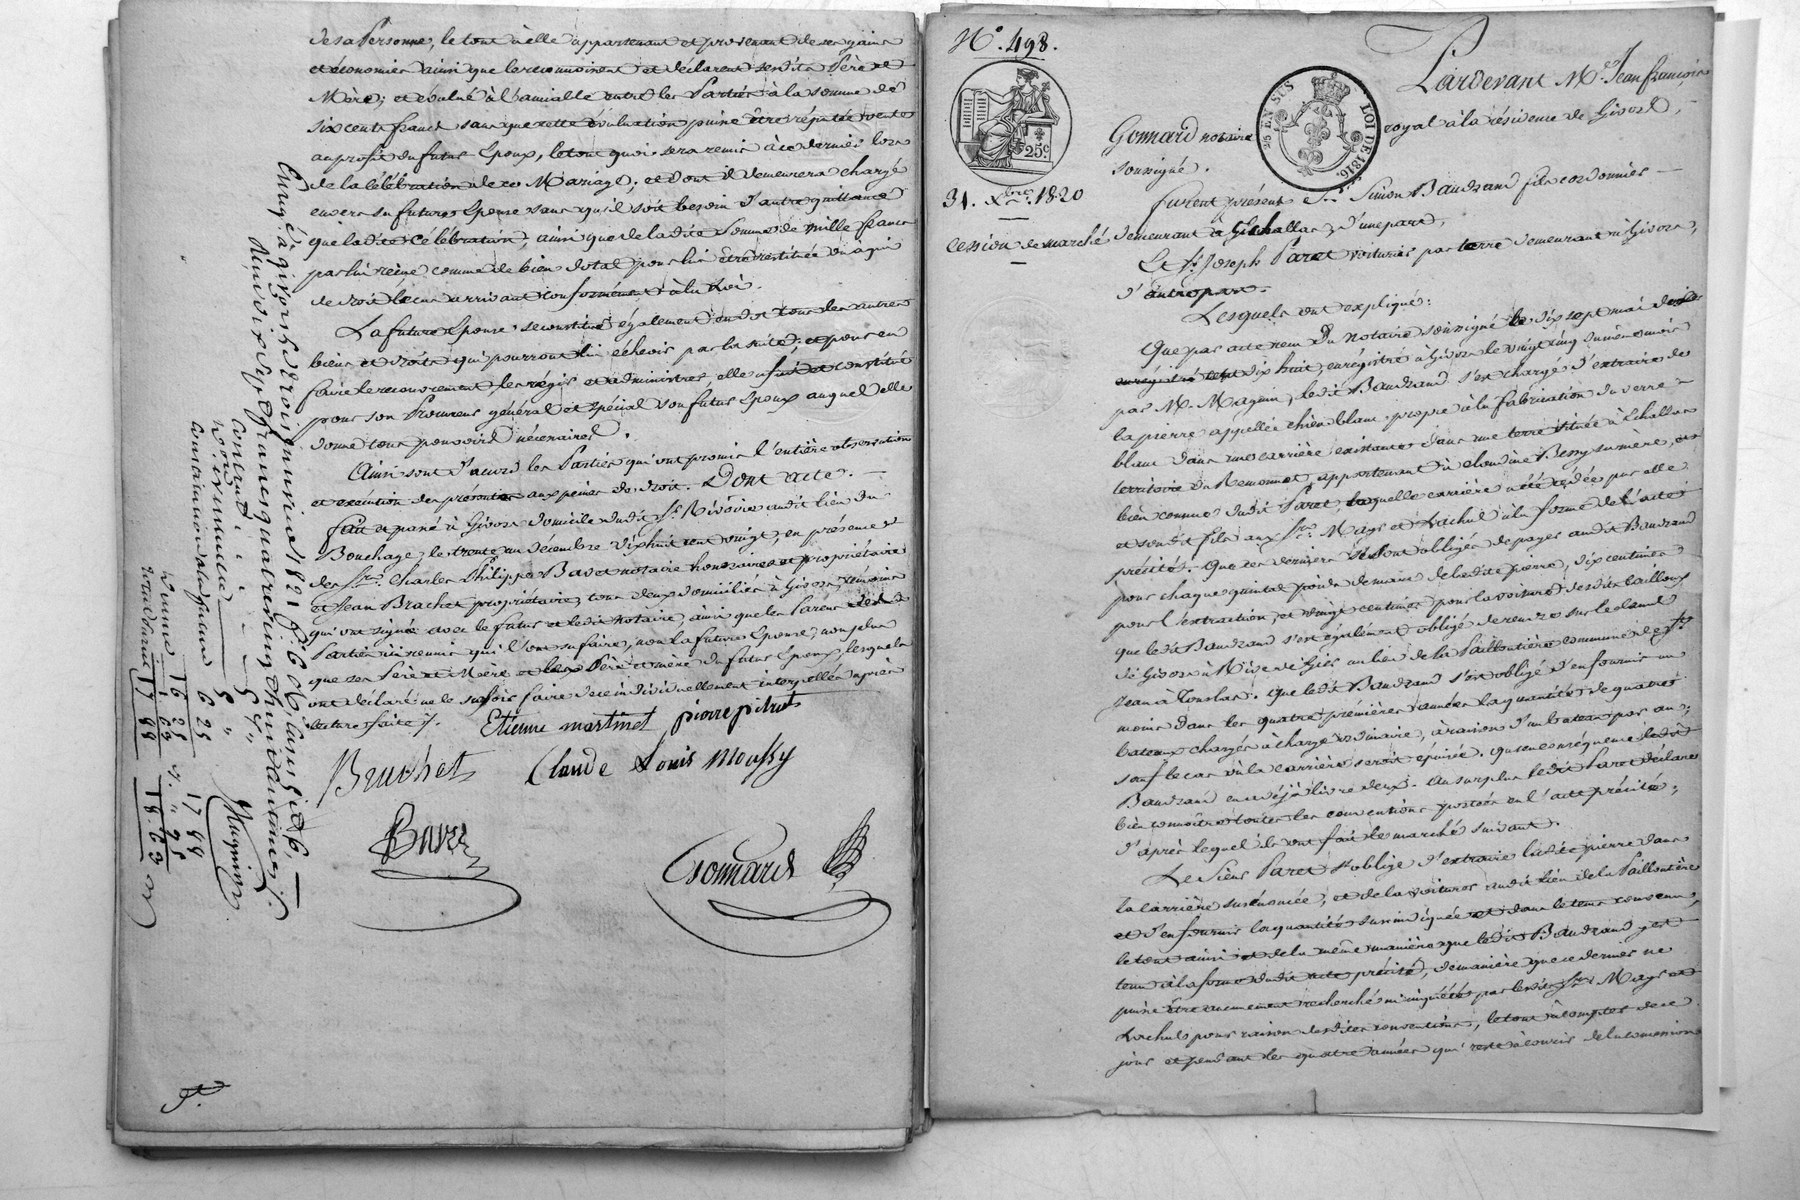 de sa Personne, le tout à elle appartenant et provenant de ses gains
et économies ainsi que le reconnoissent et déclarent sesdits Père et
Mère; et évalué à l'amiable entre les Parties à la somme de
six cents francs sans que cette évaluation puisse être réputée vente
au profit du futur Epoux, le tout quoi sera remis à ce dernier lors
de la célébration de ce Mariage; et dont il demeurera chargé
envers sa future Epouse sans qu'il soit besoin d'autre quittance
que ladite célébration, ainsi que de ladite somme de mille francs
par lui reçue comme de bien dotal pour lui être restituée ou à qui
de droit le cas arrivant conformément à la Loi.
La future Epouse se constitue également en dot tous les autres
biens et droits qui pourront lui échoir par la suite; et pour en
faire le recouvrement, les régir et administrer, elle a fait et constitué
pour son Procureur général et spécial son futur Epoux auquel elle
donne tous pouvoirs nécessaires.
Ainsi sont d'accord les Parties qui ont promis l'entière observation
et exécution des présentes aux peines de droit. Dont acte.
fait et passé à Givors domicile dudit Sr. Rivoire audit lieu du
Bouchage, le trente un décembre dix huit cent vingt, en présence
des Srs. Charles Philippe Bavet notaire honoraire et propriétaire
et Jean Brachet propriétaire, tous deux domiciliés à Givors, témoins
qui ont signé avec le futur et ledit notaire, ainsi que les Parens des
Parties ci réunis qui l'ont su faire, non la future Epouse, non plus
que ses Père et Mère et les Père et mère du futur Epoux, lesquels
ont déclaré ne le savoir faire de ce individuellement interpellés après
lecture faite ./.
Etienne martinet pierre pitrat
Bruchet Claude Louis Moussy
Bavet
Gonnard
Enreg. à givors le trois janvier 1821 f° 6
dix sept francs quatre vingt huit centimes
Contrat
1788
Magnin
N°. 498.
25 EN SUS
LOI DE 1816.
25c.
Pardevant Me. Jean françois
Gonnard notaire royal à la résidence de Givors,
soussigné.
31. Xbre. 1820
cession de marché
furent présens Sr. Simon Baudrand fils cordonnier
demeurant à Echallas, d'une part,
Et Sr. Joseph Paret voiturier par terre demeurant à Givors,
d'autre part.
Lesquels ont expliqué:
Que par acte reçu du notaire soussigné le dix sept mai dix
huit cent dix huit, enregistré à Givors le vingt cinq du même mois
par M. Magnin, ledit Baudrand s'est chargé d'extraire de
la pierre appellée chien blanc propre à la fabrication du verre
blanc dans une carrière existante dans une terre située à Echallas
territoire du Remonnet, appartenant à Claudine Bessy sa mère, et
bien connue dudit Paret, laquelle carrière a été cédée par elle
et sondit fils aux Srs. Mays et Lachul à la forme de l'acte
précité. Que ces derniers se sont obligés de payer audit Baudrand
pour chaque quintal poids de marc de ladite pierre, dix centimes
pour l'extraction, et vingt centimes pour la voiture desdits cailloux
que ledit Baudrand s'est également obligé de rendre sur le canal
de Givors à Rive de Gier au lieu de la Paillottière commune de St.
Jean à Touslas. Que ledit Baudrand s'est obligé d'en fournir au
moins dans les quatre premières années la quantité de quatre
bateaux chargés à charge ordinaire, à raison d'un bateau par an,
sauf le cas où la carrière seroit épuisée. Qu'en conséquence ledit
Baudrand en a déjà livré deux. Au surplus ledit Paret déclare
bien connoître toutes les conventions portées en l'acte précité;
d'après lequel ils ont fait le marché suivant.
Le Sieur Paret s'oblige d'extraire ladite pierre dans
la carrière susénoncée, et de la voiturer audit lieu de la Paillottière
et d'en fournir la quantité sus indiquée et dans le tems convenu,
le tout ainsi et de la même manière que ledit Baudrand y est
tenu à la forme dudit acte précité, de manière que ce dernier ne
puisse être aucunement recherché ni inquiété par lesdits Srs. Mays et
Lachul pour raison desdites conventions, le tout à compter de ce
jour et pendant les quatre années qui reste à courir de la concession